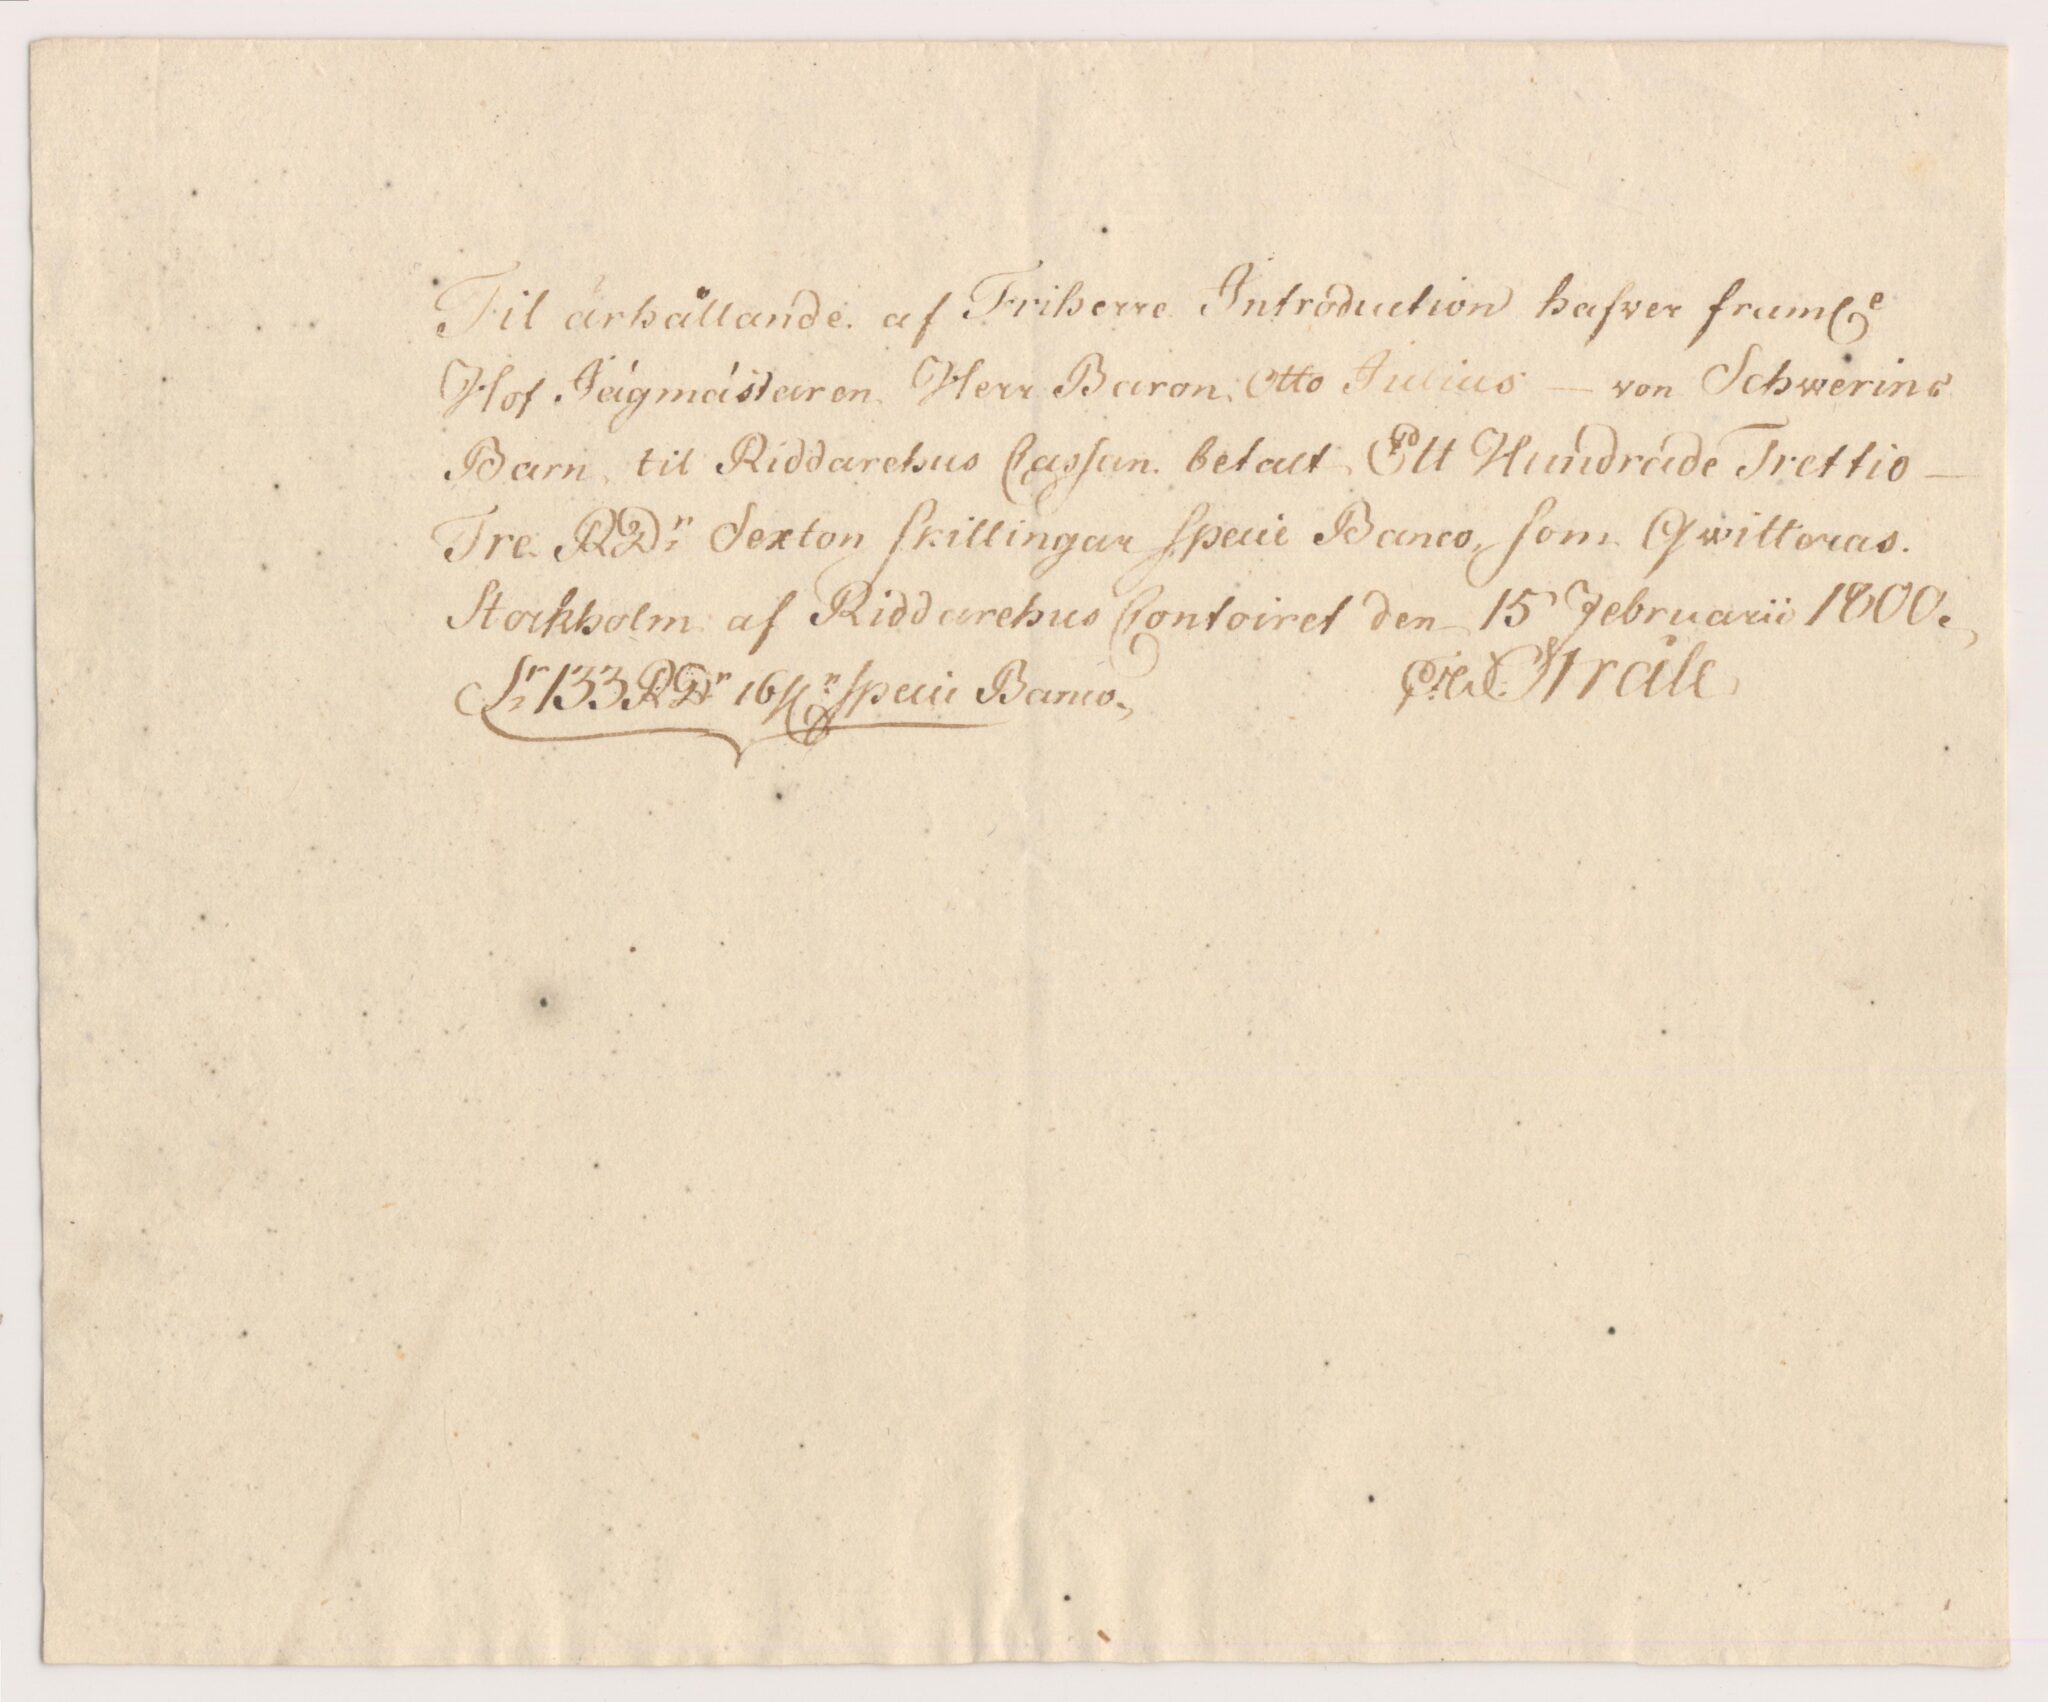 Til ärhållande af Friherre Introduction hafver fram
Hof Jägmästaren Herr Baron Otto Julius — von Schwerins
Barn til Riddarehus Cassan betalt Ett Hundrade Trettio —
Tre RDr Sexton skillingar specie Banco, som Qwitteras.
Stockholm af Riddarehus Contoiret den 15 Februarii 1800.
Sr 133 RDr 16 sk:r specie Banco. Stråle